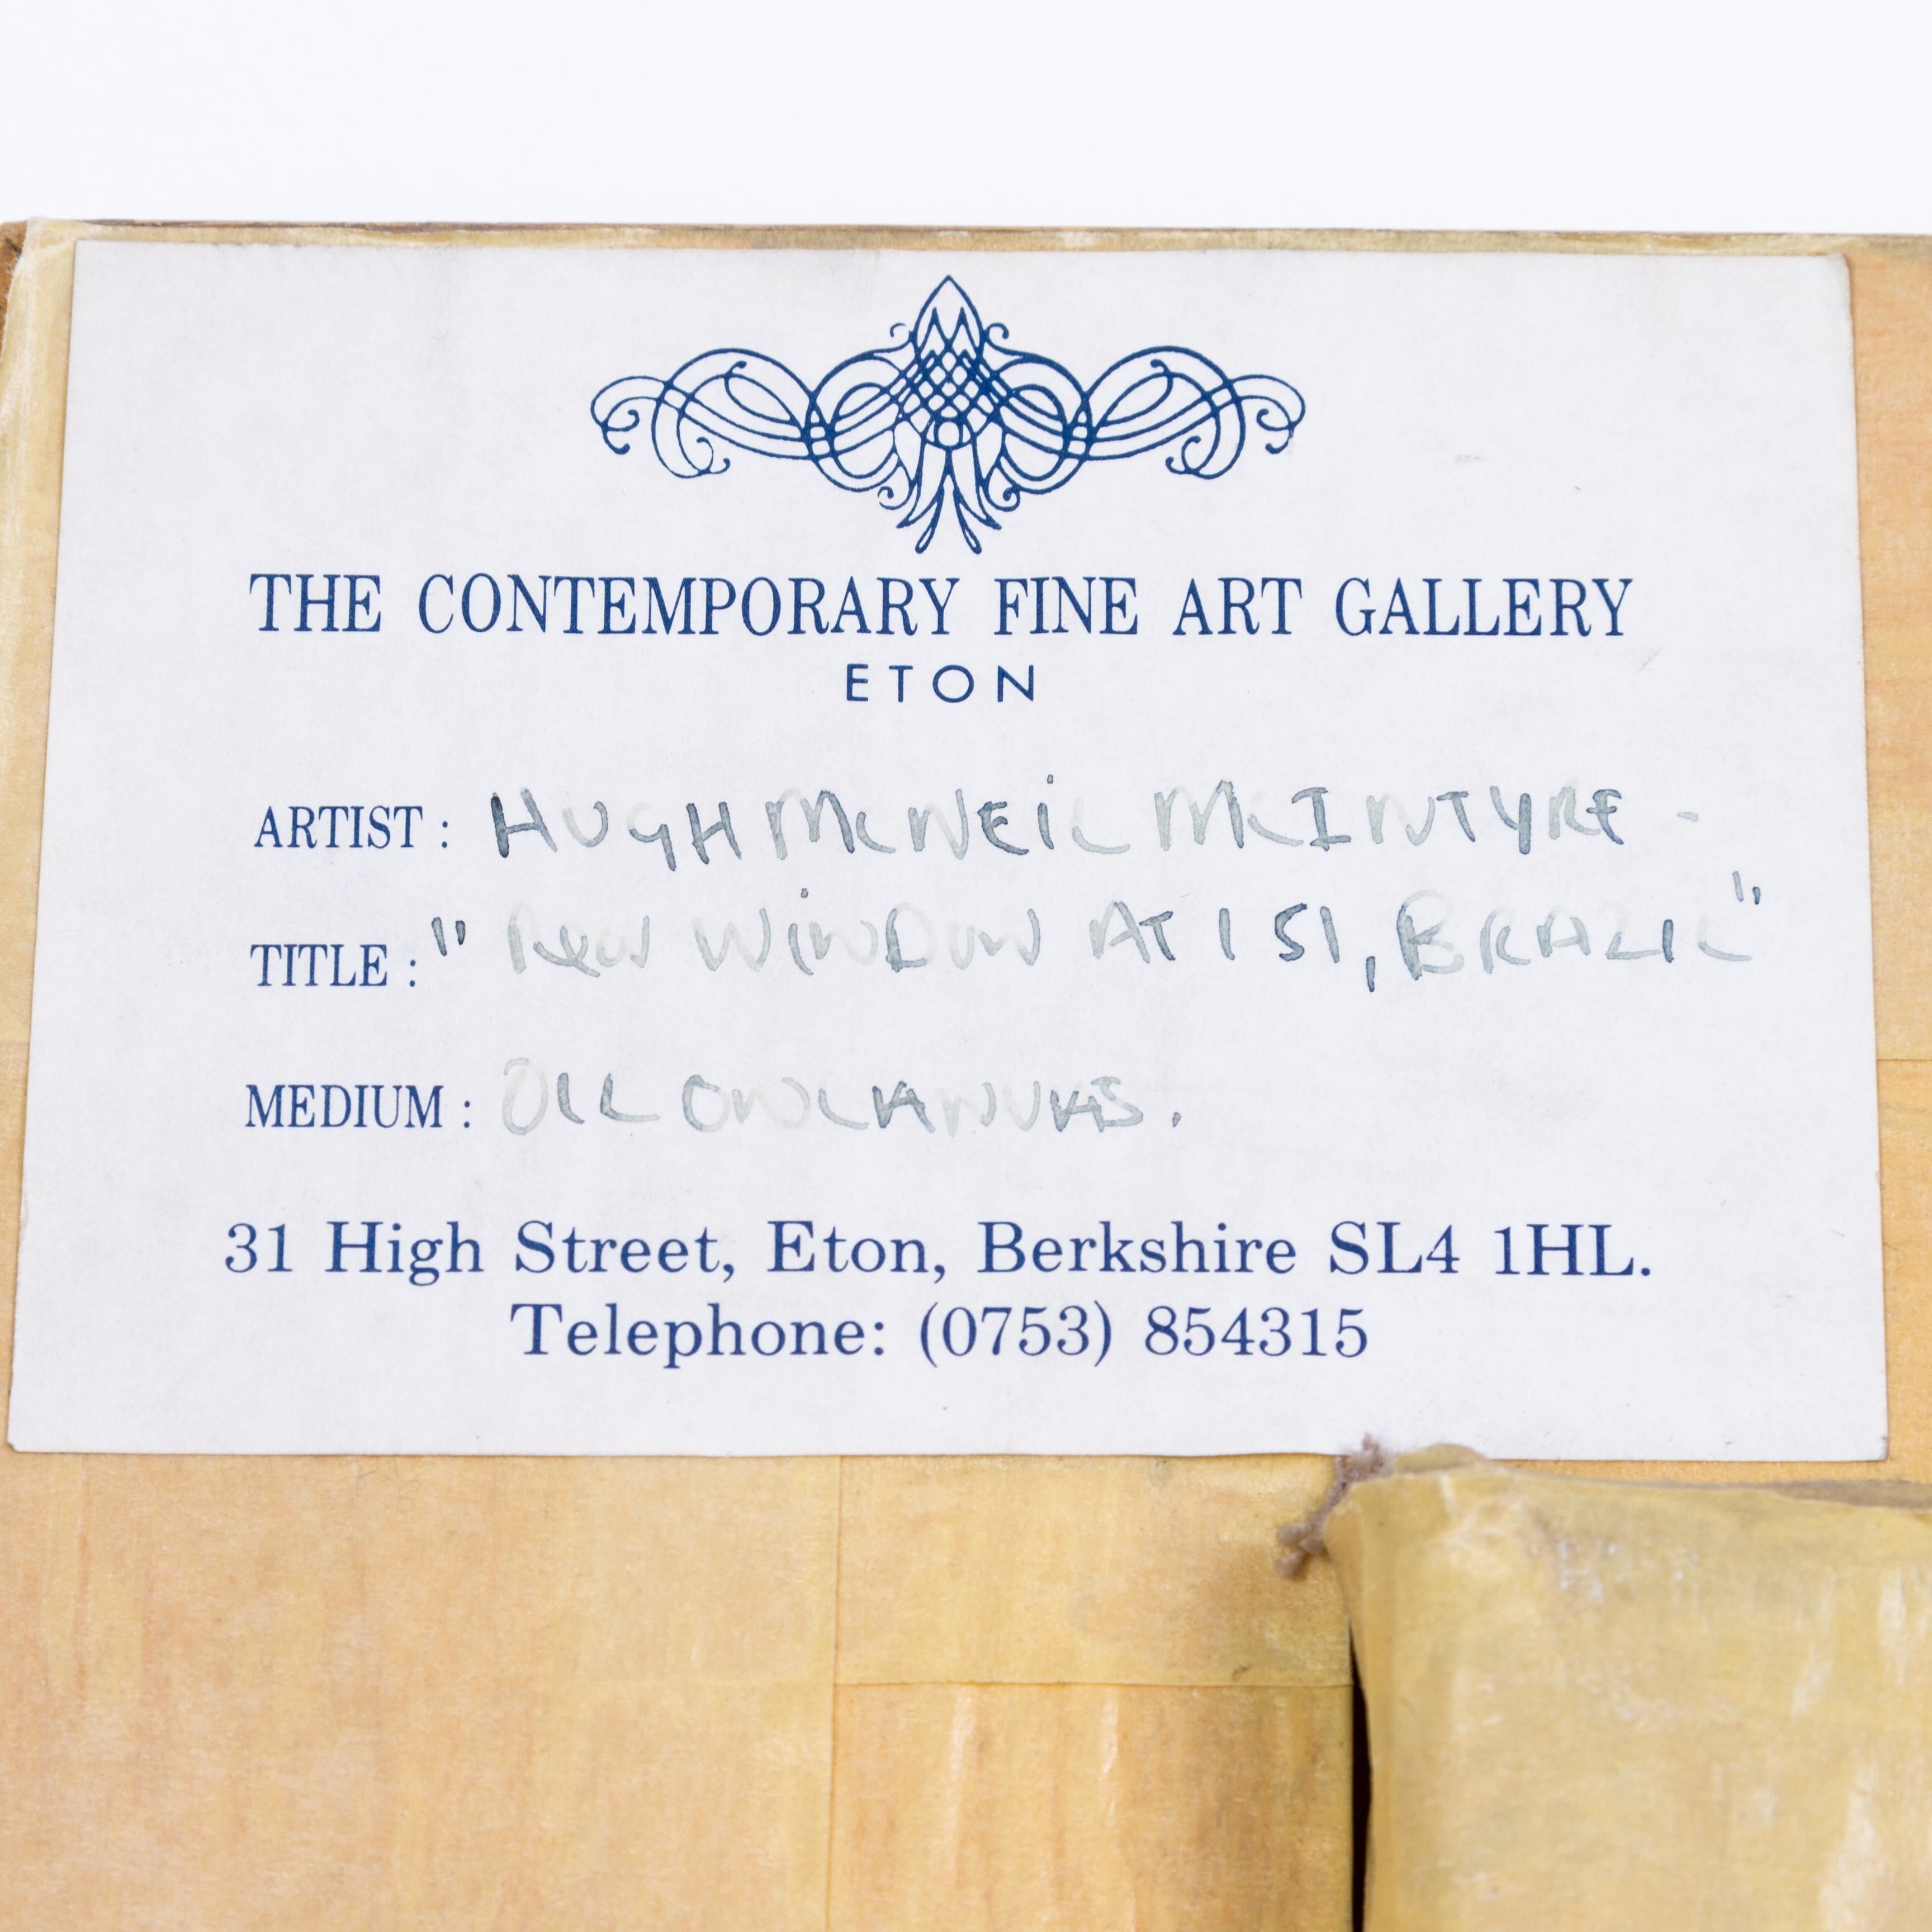 THE CONTEMPORARY FINE ART GALLERY
ETON
ARTIST : HUGH McNEiL McINTYRE -
TITLE : " WiNDOW AT 151, BRAZIL"
MEDIUM : OIL ON CANVAS.
31 High Street, Eton, Berkshire SL4 1HL.
Telephone: (0753) 854315